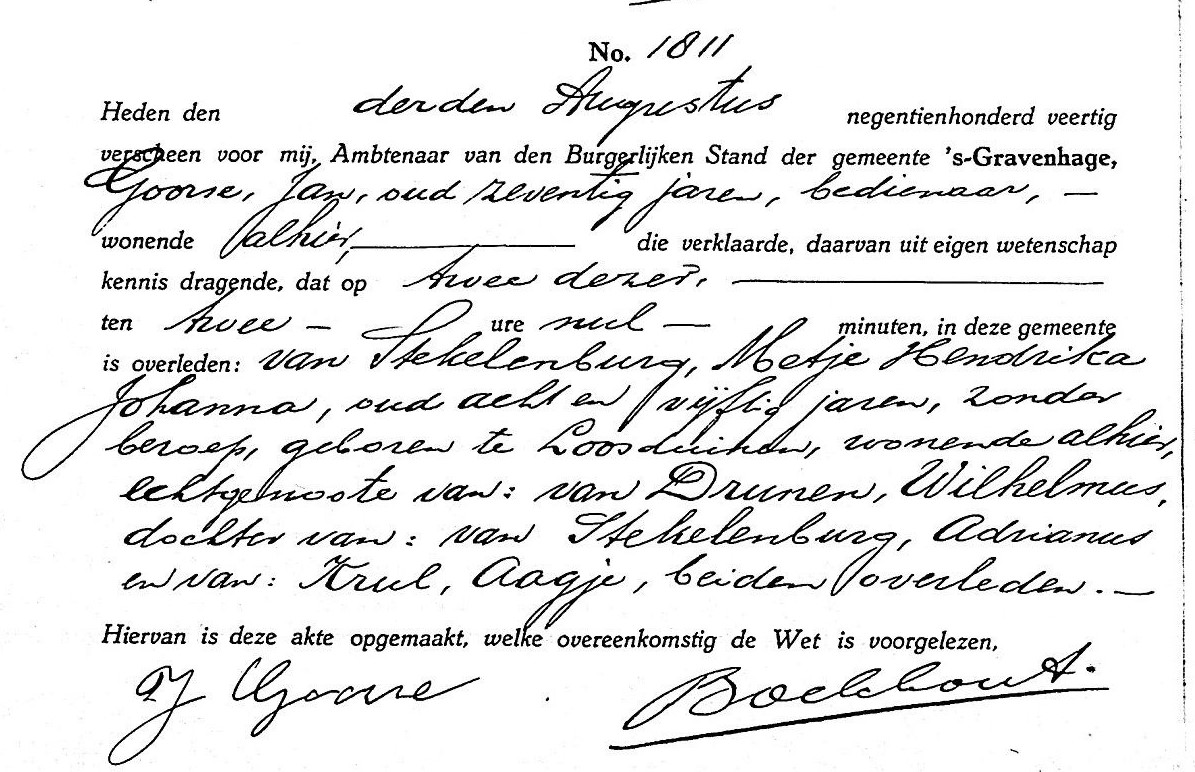 No. 1811
Heden den derden Augustus negentienhonderd veertig
verscheen voor mij, Ambtenaar van den Burgerlijken Stand der gemeente 's-Gravenhage,
Goorse, Jan, oud zeventig jaren, bedienaar, —
wonende alhier, — die verklaarde, daarvan uit eigen wetenschap
kennis dragende, dat op twee dezer, —
ten twee — ure nul — minuten, in deze gemeente
is overleden: van Stekelenburg, Metje Hendrika
Johanna, oud acht en vijftig jaren, zonder
beroep, geboren te Loosduinen, wonende alhier,
echtgenoote van: van Drunen, Wilhelmus,
dochter van: van Stekelenburg, Adrianus
en van: Krul, Aagje, beiden overleden. —
Hiervan is deze akte opgemaakt, welke overeenkomstig de Wet is voorgelezen,
J Goorse Boekhout.